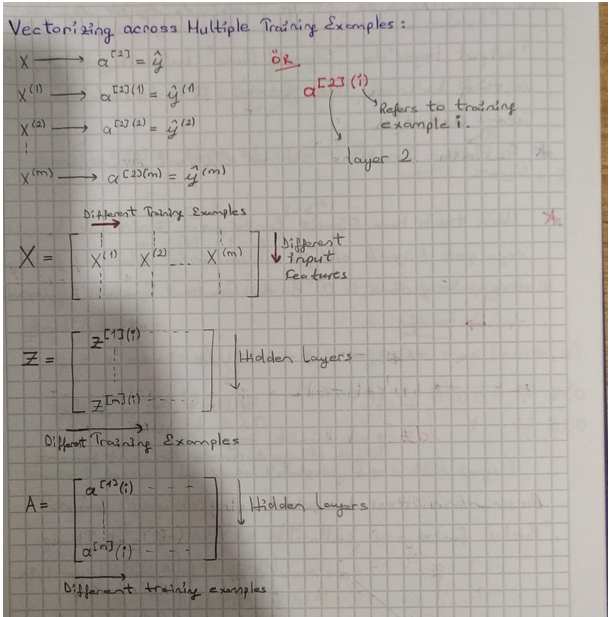 Vectorizing across Multiple Training Examples:
X → a^[2] = ŷ
X^(1) → a^[2](1) = ŷ^(1)
X^(2) → a^[2](2) = ŷ^(2)
X^(m) → a^[2](m) = ŷ^(m)
ÖR
a^[2](i)
Refers to training
example i.
layer 2
Different Training Examples
X = [ X^(1) X^(2) .... X^(m) ]
Different
input
features
Z =
Z^[1](i)
Z^[n](i)
Hidden Layers
Different Training Examples
A =
a^[1](i)
a^[n](i)
Hidden Layers
Different training examples